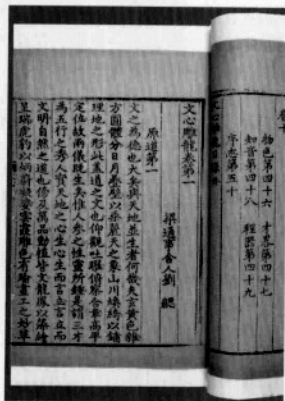 物色第四十六 才略第四十七
知音第四十八 程器第四十九
序志第五十
文心雕龍卷第一
梁通事舍人劉 勰
原道第一
文之為德也大矣與天地並生者何哉夫玄黃色雜
方圓體分日月疊璧以垂麗天之象山川煥綺以鋪
理地之形此蓋道之文也仰觀吐曜俯察含章高卑
定位故兩儀既生矣惟人參之性靈所鍾是謂三才
為五行之秀人實天地之心生心生而言立言立而
文明自然之道也傍及萬品動植皆文龍鳳以藻繪
呈瑞虎豹以炳蔚凝姿雲霞雕色有踰畫工之妙草